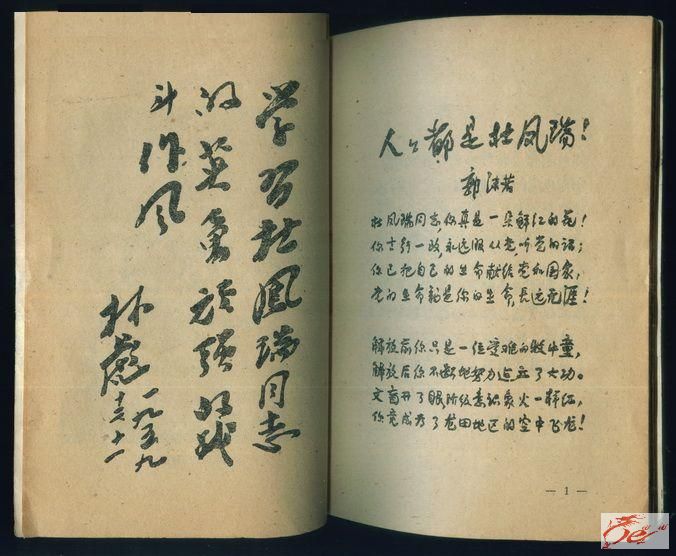 学习杜鳳瑞同志
的英勇顽强的战
斗作风
林彪 一九五九
人人都是杜凤瑞!
郭沫若
杜凤瑞同志,你真是一朵鲜红的花!
你言行一致,永远服从党,听党的话;
你已把自己的生命献给党和国家,
党的生命就是你的生命,长远无涯!
解放前你只是一位受难的牧牛童,
解放后你不断地努力立了大功。
文盲开了眼阶级意识象火一样红,
你竟成为了龙田地区的空中飞龙!
— 1 —